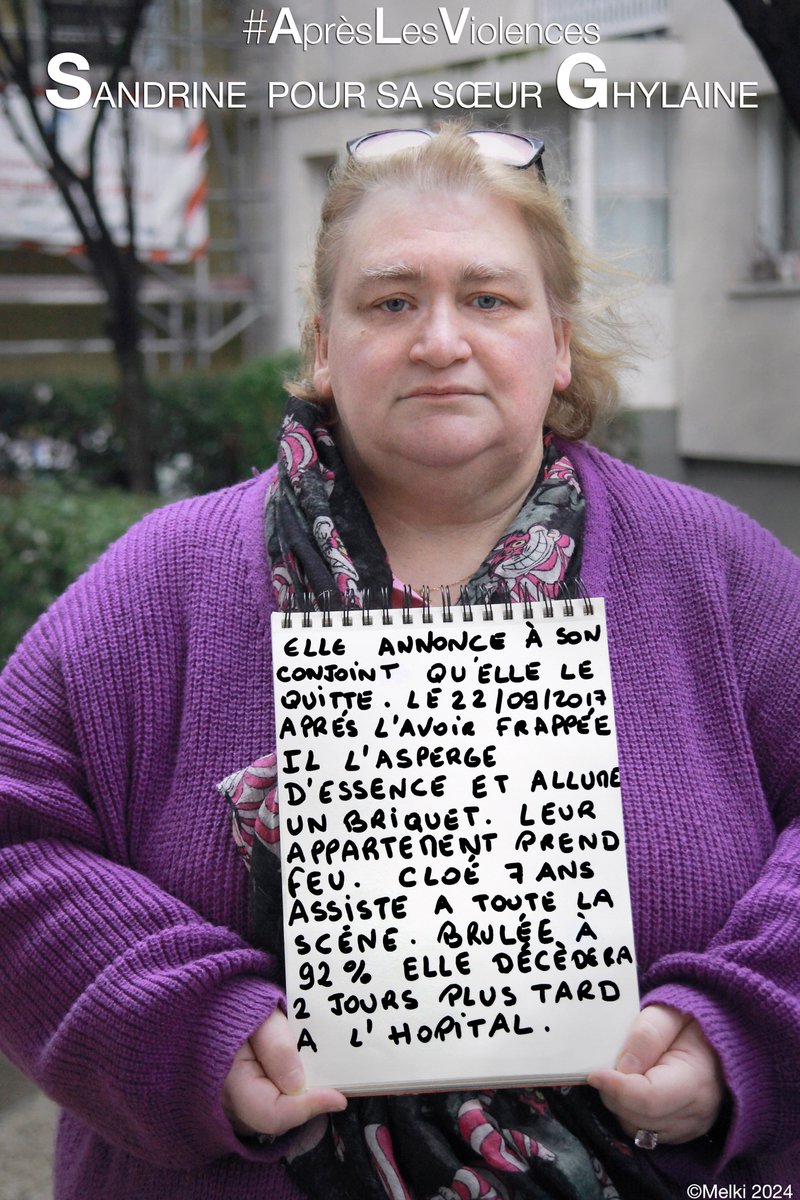 #AprèsLesViolences
SANDRINE POUR SA SŒUR GHYLAINE
ELLE ANNONCE À SON
CONJOINT QU'ELLE LE
QUITTE. LE 22/09/2017
APRÉS L'AVOIR FRAPPÉE
IL L'ASPERGE
D'ESSENCE ET ALLUME
UN BRIQUET. LEUR
APPARTEMENT PREND
FEU. CLOÉ 7 ANS
ASSISTE A TOUTE LA
SCÈNE. BRULÉE À
92% ELLE DÉCÈDERA
2 JOURS PLUS TARD
A L'HOPITAL.
©Melki 2024